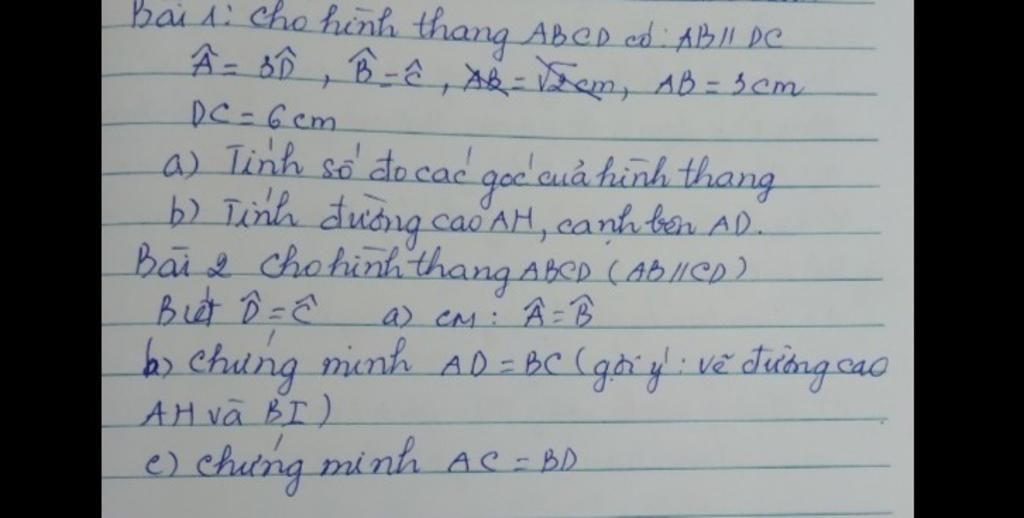 Bài 1: Cho hình thang ABCD có: AB // DC
Â = 3D̂, B̂ = Ĉ, AB = √2cm, AB = 3cm
DC = 6cm
a) Tính số đo các góc của hình thang
b) Tính đường cao AH, cạnh bên AD.
Bài 2 Cho hình thang ABCD (AB // CD)
Biết D̂ = Ĉ a) CM: Â = B̂
b) Chứng minh AD = BC (gợi ý: vẽ đường cao
AH và BI)
c) Chứng minh AC = BD